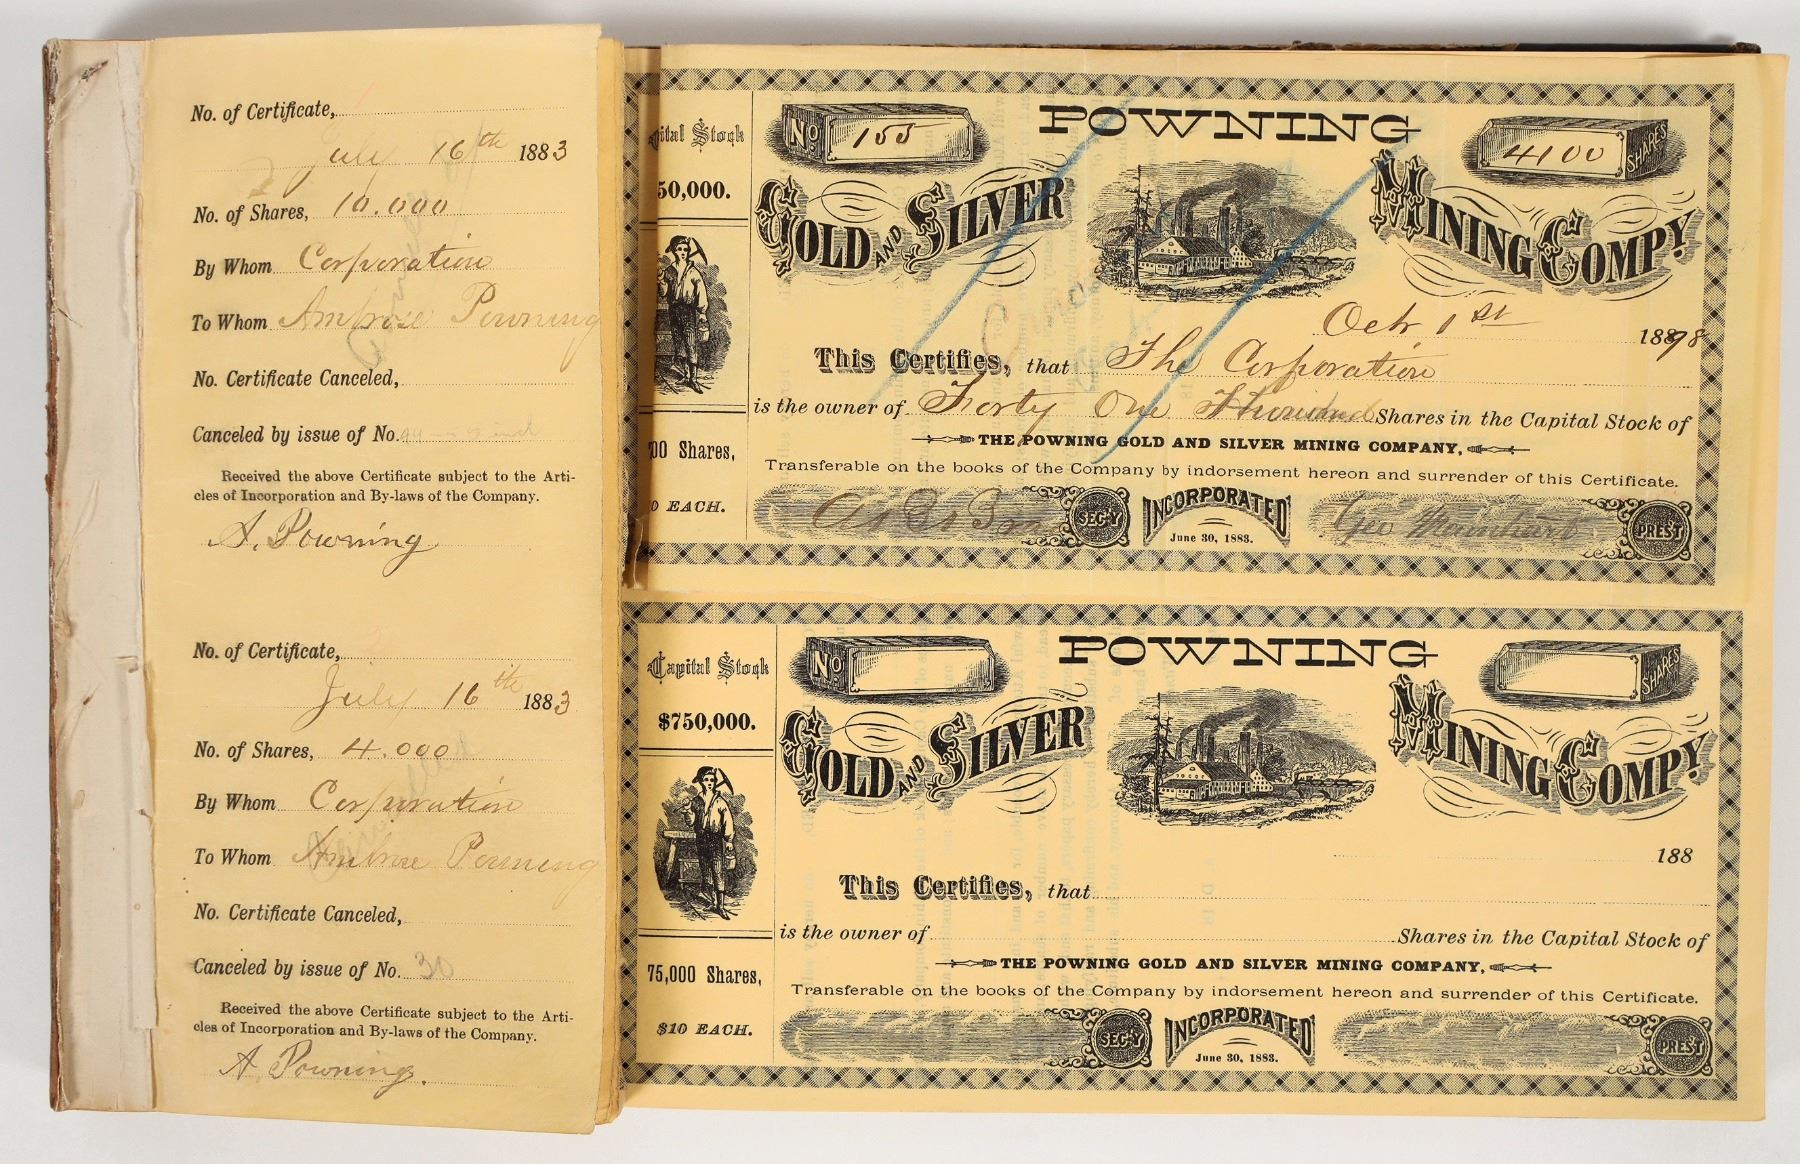 No. of Certificate, 1
July 16th 1883
No. of Shares, 10.000
By Whom Corporation
To Whom Ambrose Powning
No. Certificate Canceled,
Canceled by issue of No.
Received the above Certificate subject to the Arti-
cles of Incorporation and By-laws of the Company.
A. Powning
No. of Certificate, 2
July 16th 1883
No. of Shares, 4.000
By Whom Corporation
To Whom Ambrose Powning
No. Certificate Canceled,
Canceled by issue of No. 30
Received the above Certificate subject to the Arti-
cles of Incorporation and By-laws of the Company.
A. Powning.
Capital Stock
50,000.
00 Shares,
0 EACH.
No. 155
POWNING
4100 SHARES
GOLD AND SILVER MINING COMPY
Octr 1st 1898
This Certifies, that The Corporation
is the owner of Forty One Thousand Shares in the Capital Stock of
THE POWNING GOLD AND SILVER MINING COMPANY,
Transferable on the books of the Company by indorsement hereon and surrender of this Certificate.
SEC'Y
INCORPORATED
June 30, 1883.
Geo
PREST
Capital Stock
$750,000.
75,000 Shares,
$10 EACH.
No.
POWNING
SHARES
GOLD AND SILVER MINING COMPY
188
This Certifies, that
is the owner of Shares in the Capital Stock of
THE POWNING GOLD AND SILVER MINING COMPANY,
Transferable on the books of the Company by indorsement hereon and surrender of this Certificate.
SEC'Y
INCORPORATED
June 30, 1883.
PREST